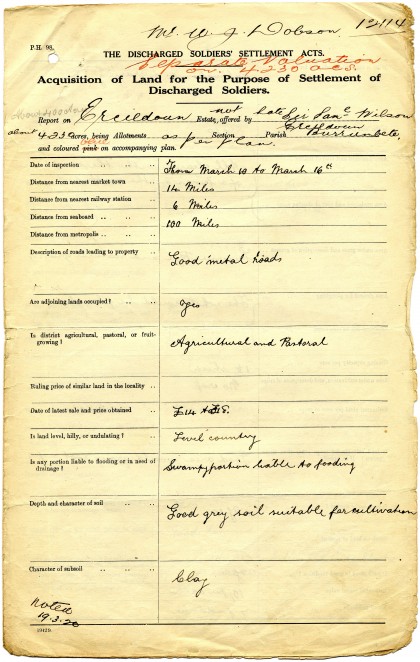 Mr. W. J. Dobson
12114
P.H. 98.
THE DISCHARGED SOLDIERS' SETTLEMENT ACTS.
Separate Valuation
on 4230 acs.
Acquisition of Land for the Purpose of Settlement of
Discharged Soldiers.
Report on Ercildoun not Estate, offered by late Sir Sam^l Wilson
Ercildoun
about 4232 acres, being Allotments as per plan. Section Parish Burrumbeet
and coloured pink on accompanying plan.
Date of inspection .. .. From March 10 to March 16th
Distance from nearest market town .. 14 Miles
Distance from nearest railway station .. 6 Miles
Distance from seaboard .. ..
Distance from metropolis .. .. 100 Miles
Description of roads leading to property .. Good metal Roads
Are adjoining lands occupied? .. .. Yes
Is district agricultural, pastoral, or fruit-
growing? .. .. Agricultural and Pastoral
Ruling price of similar land in the locality ..
Date of latest sale and price obtained £14
Is land level, hilly, or undulating? .. Level country
Is any portion liable to flooding or in need of
drainage? .. .. Swampy portion liable to flooding
Depth and character of soil .. .. Good grey soil suitable for cultivation
Character of subsoil .. .. Clay
Noted
19.3.20